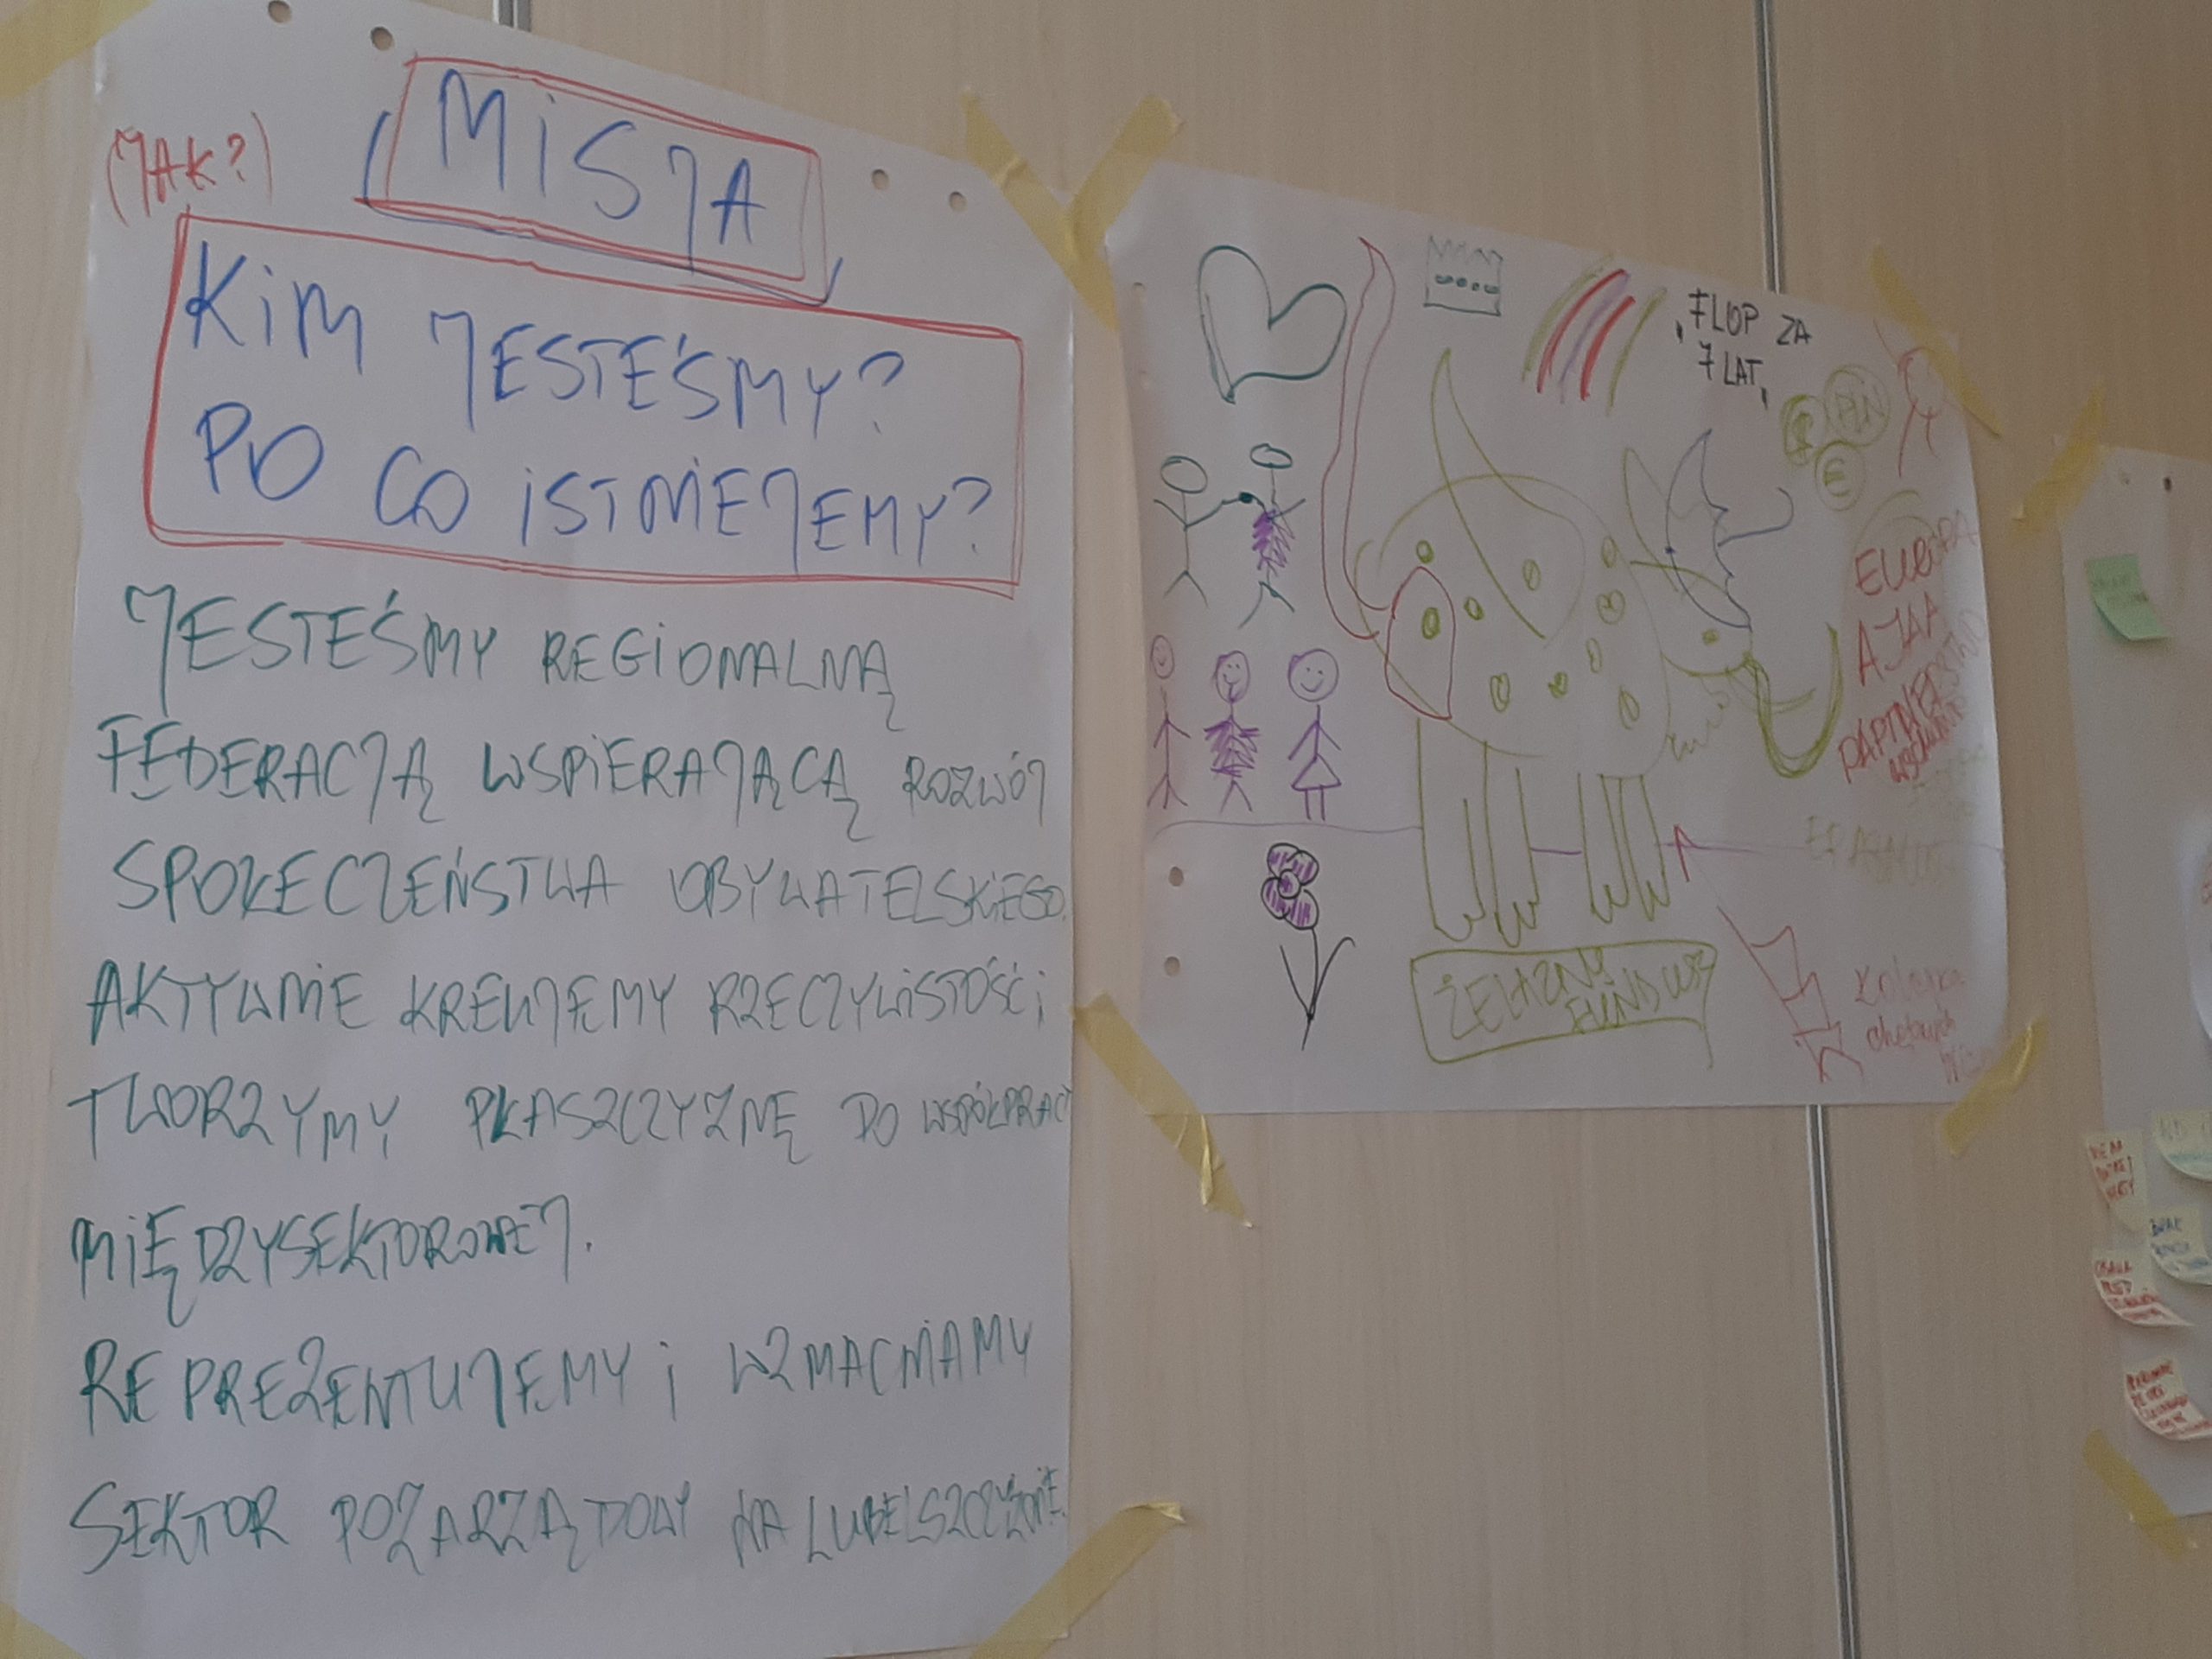 (JAK?)
MISJA
KIM JESTEŚMY?
PO CO ISTNIEJEMY?
JESTEŚMY REGIONALNĄ
FEDERACJĄ WSPIERAJĄCĄ ROZWÓJ
SPOŁECZEŃSTWA OBYWATELSKIEGO.
AKTYWNIE KREUJEMY RZECZYWISTOŚĆ i
TWORZYMY PŁASZCZYZNĘ DO WSPÓŁPRACY
MIĘDZYSEKTOROWEJ.
REPREZENTUJEMY i WZMACNIAMY
SEKTOR POZARZĄDOWY NA LUBELSZCZYŹNIE.
FLOP ZA
7 LAT
PLN
€
EUROPA
AJAA
ŻELAZNY
FUNDUSZ
Kolejka
chętnych
BRAK